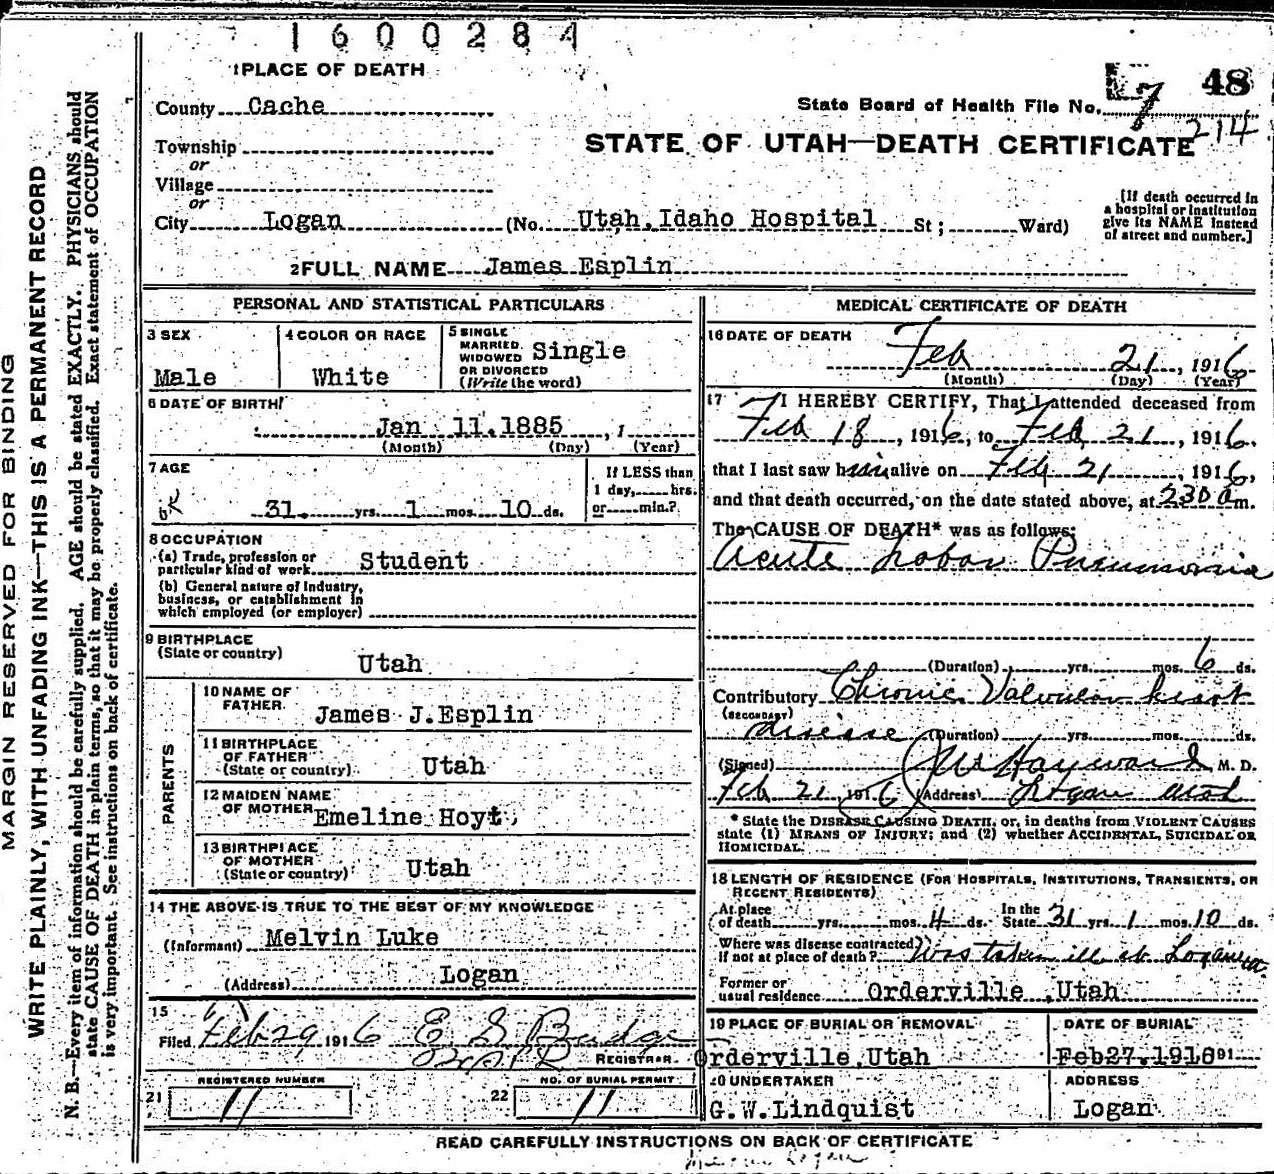 1600284
1 PLACE OF DEATH
48
County Cache
State Board of Health File No. 7
214
STATE OF UTAH—DEATH CERTIFICATE
Township
or
Village
or
City Logan (No. Utah, Idaho Hospital St; Ward)
[If death occurred in
a hospital or institution
give its NAME instead
of street and number.]
2 FULL NAME James Esplin
PERSONAL AND STATISTICAL PARTICULARS
3 SEX
Male
4 COLOR OR RACE
White
5 SINGLE
MARRIED
WIDOWED
OR DIVORCED
(Write the word)
Single
6 DATE OF BIRTH
Jan 11.1885, 1
(Month) (Day) (Year)
7 AGE
31. yrs. 1 mos. 10 ds.
If LESS than
1 day, hrs.
or min.?
8 OCCUPATION
(a) Trade, profession or
particular kind of work Student
(b) General nature of Industry,
business, or establishment in
which employed (or employer)
9 BIRTHPLACE
(State or country)
Utah
PARENTS
10 NAME OF
FATHER
James J.Esplin
11 BIRTHPLACE
OF FATHER
(State or country)
Utah
12 MAIDEN NAME
OF MOTHER Emeline Hoyt
13 BIRTHPLACE
OF MOTHER
(State or country)
Utah
14 THE ABOVE IS TRUE TO THE BEST OF MY KNOWLEDGE
(Informant) Melvin Luke
(Address) Logan
15
Filed Feb 29 1916 E S Budge
REGISTRAR.
REGISTERED NUMBER
21 11
NO. OF BURIAL PERMIT
22 11
MEDICAL CERTIFICATE OF DEATH
16 DATE OF DEATH
Feb 21, 1916
(Month) (Day) (Year)
17 I HEREBY CERTIFY, That I attended deceased from
Feb 18, 1916, to Feb 21, 1916.
that I last saw him alive on Feb 21, 1916,
and that death occurred, on the date stated above, at 230 a m.
The CAUSE OF DEATH* was as follows:
Acute Lobar Pneumonia
(Duration) yrs. mos. 6 ds.
Contributory Chronic Valvular heart
(SECONDARY)
disease (Duration) yrs. mos. ds.
(Signed) Hayward, M. D.
Feb 21, 1916 (Address) Logan Utah
* State the DISEASE CAUSING DEATH, or, in deaths from VIOLENT CAUSES
state (1) MEANS OF INJURY; and (2) whether ACCIDENTAL, SUICIDAL OR
HOMICIDAL.
18 LENGTH OF RESIDENCE (FOR HOSPITALS, INSTITUTIONS, TRANSIENTS, OR
RECENT RESIDENTS)
At place
of death yrs. mos. 4 ds.
In the
State 31 yrs. 1 mos. 10 ds.
Where was disease contracted
If not at place of death? Was taken ill at Logan
Former or
usual residence Orderville ,Utah
19 PLACE OF BURIAL OR REMOVAL
Orderville,Utah
DATE OF BURIAL
Feb27.1916 191
20 UNDERTAKER
G.W.Lindquist
ADDRESS
Logan
READ CAREFULLY INSTRUCTIONS ON BACK OF CERTIFICATE
MARGIN RESERVED FOR BINDING
WRITE PLAINLY, WITH UNFADING INK—THIS IS A PERMANENT RECORD
N. B.—Every item of information should be carefully supplied. AGE should be stated EXACTLY. PHYSICIANS should
state CAUSE OF DEATH in plain terms, so that it may be properly classified. Exact statement of OCCUPATION
is very important. See instructions on back of certificate.